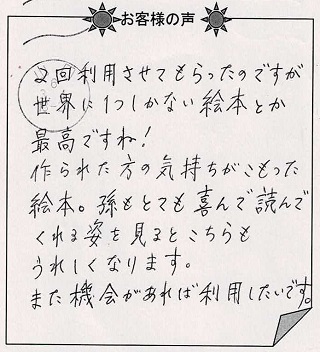 お客様の声
2回利用させてもらったのですが
世界に1つしかない絵本とか
最高ですね!
作られた方の気持ちがこもった
絵本。孫もとても喜んで読んで
くれる姿を見るとこちらも
うれしくなります。
また機会があれば利用したいです。